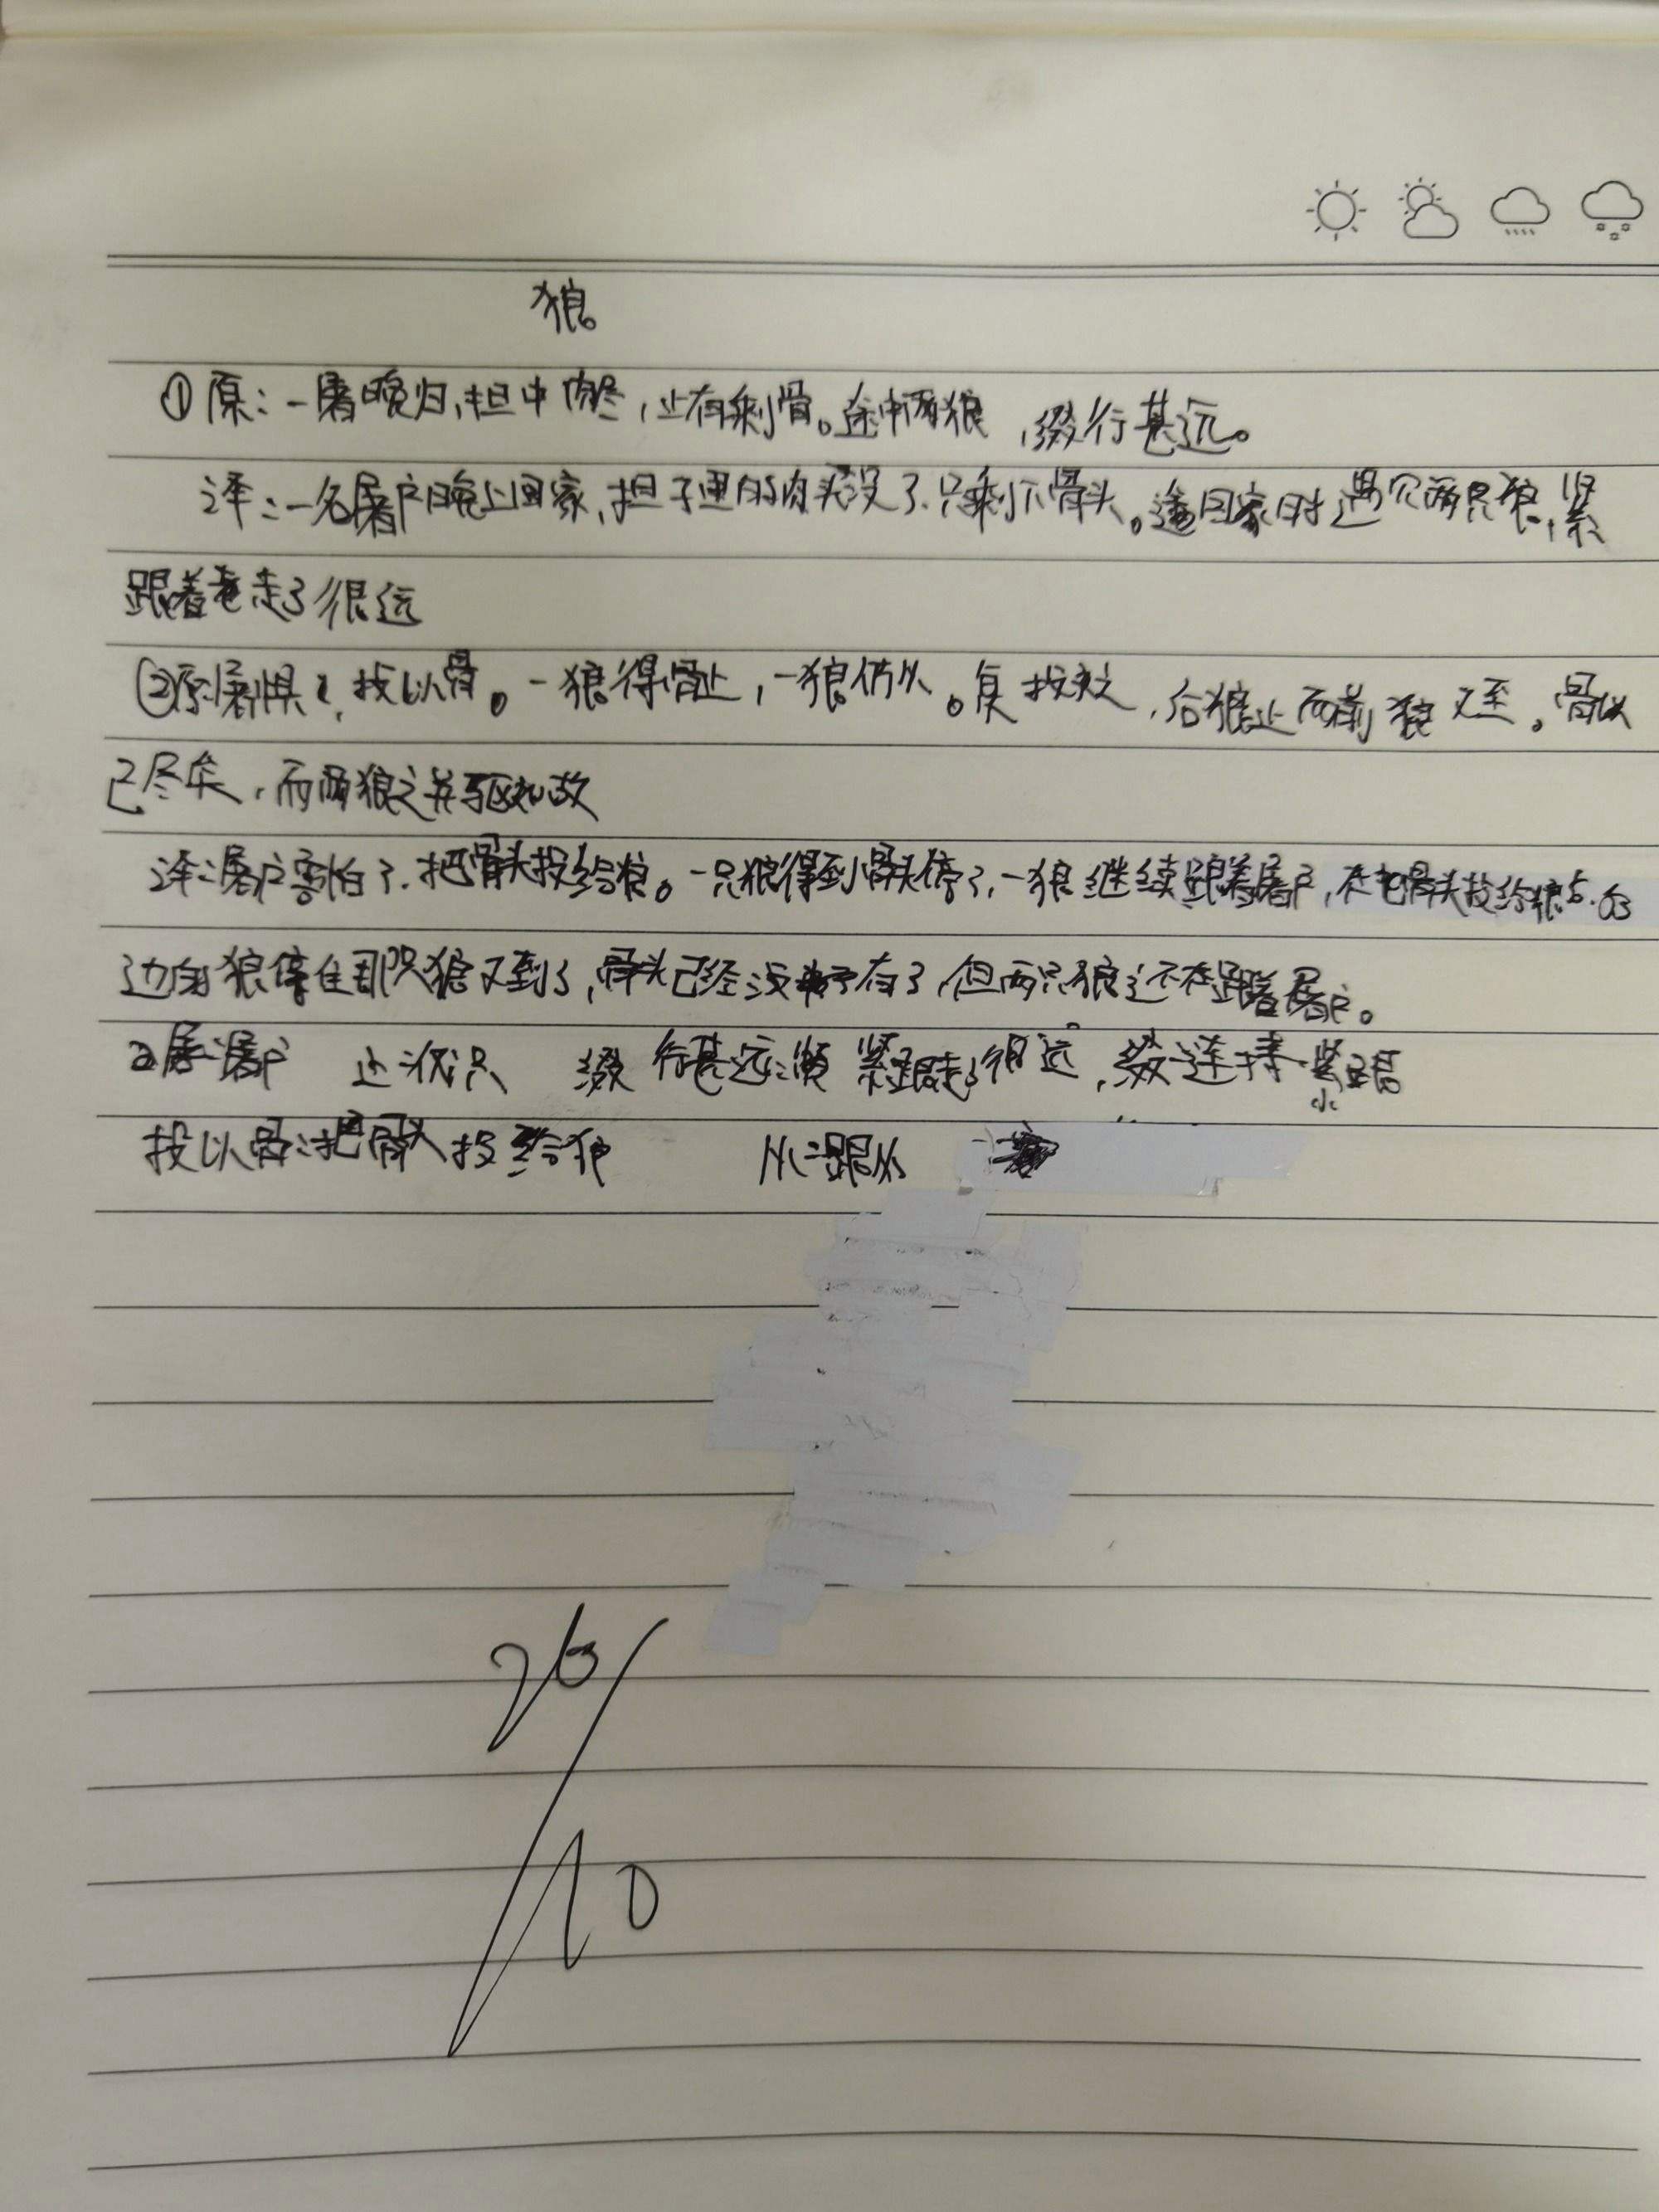 狼
①原：一屠晚归，担中肉尽，止有剩骨。途中两狼，缀行甚远。
译：一名屠户晚上回家，担子里的肉没了，只剩下骨头。回家时遇见两只狼，紧
跟着走了很远
②原：屠惧，投以骨。一狼得骨止，一狼仍从。复投之，后狼止而前狼又至。骨
已尽矣，而两狼之并驱如故
译：屠户害怕了，把骨头投给狼。一只狼得到骨头停了，一狼继续跟着屠户，在把骨头投给狼，
边的狼停住那只狼又到了，骨头已经没有了，但两只狼还在跟着屠户。
屠：屠户 止：只 缀行甚远：紧跟走了很远，缀：连接 紧跟
投以骨：把骨头投给狼 从：跟从
26/10